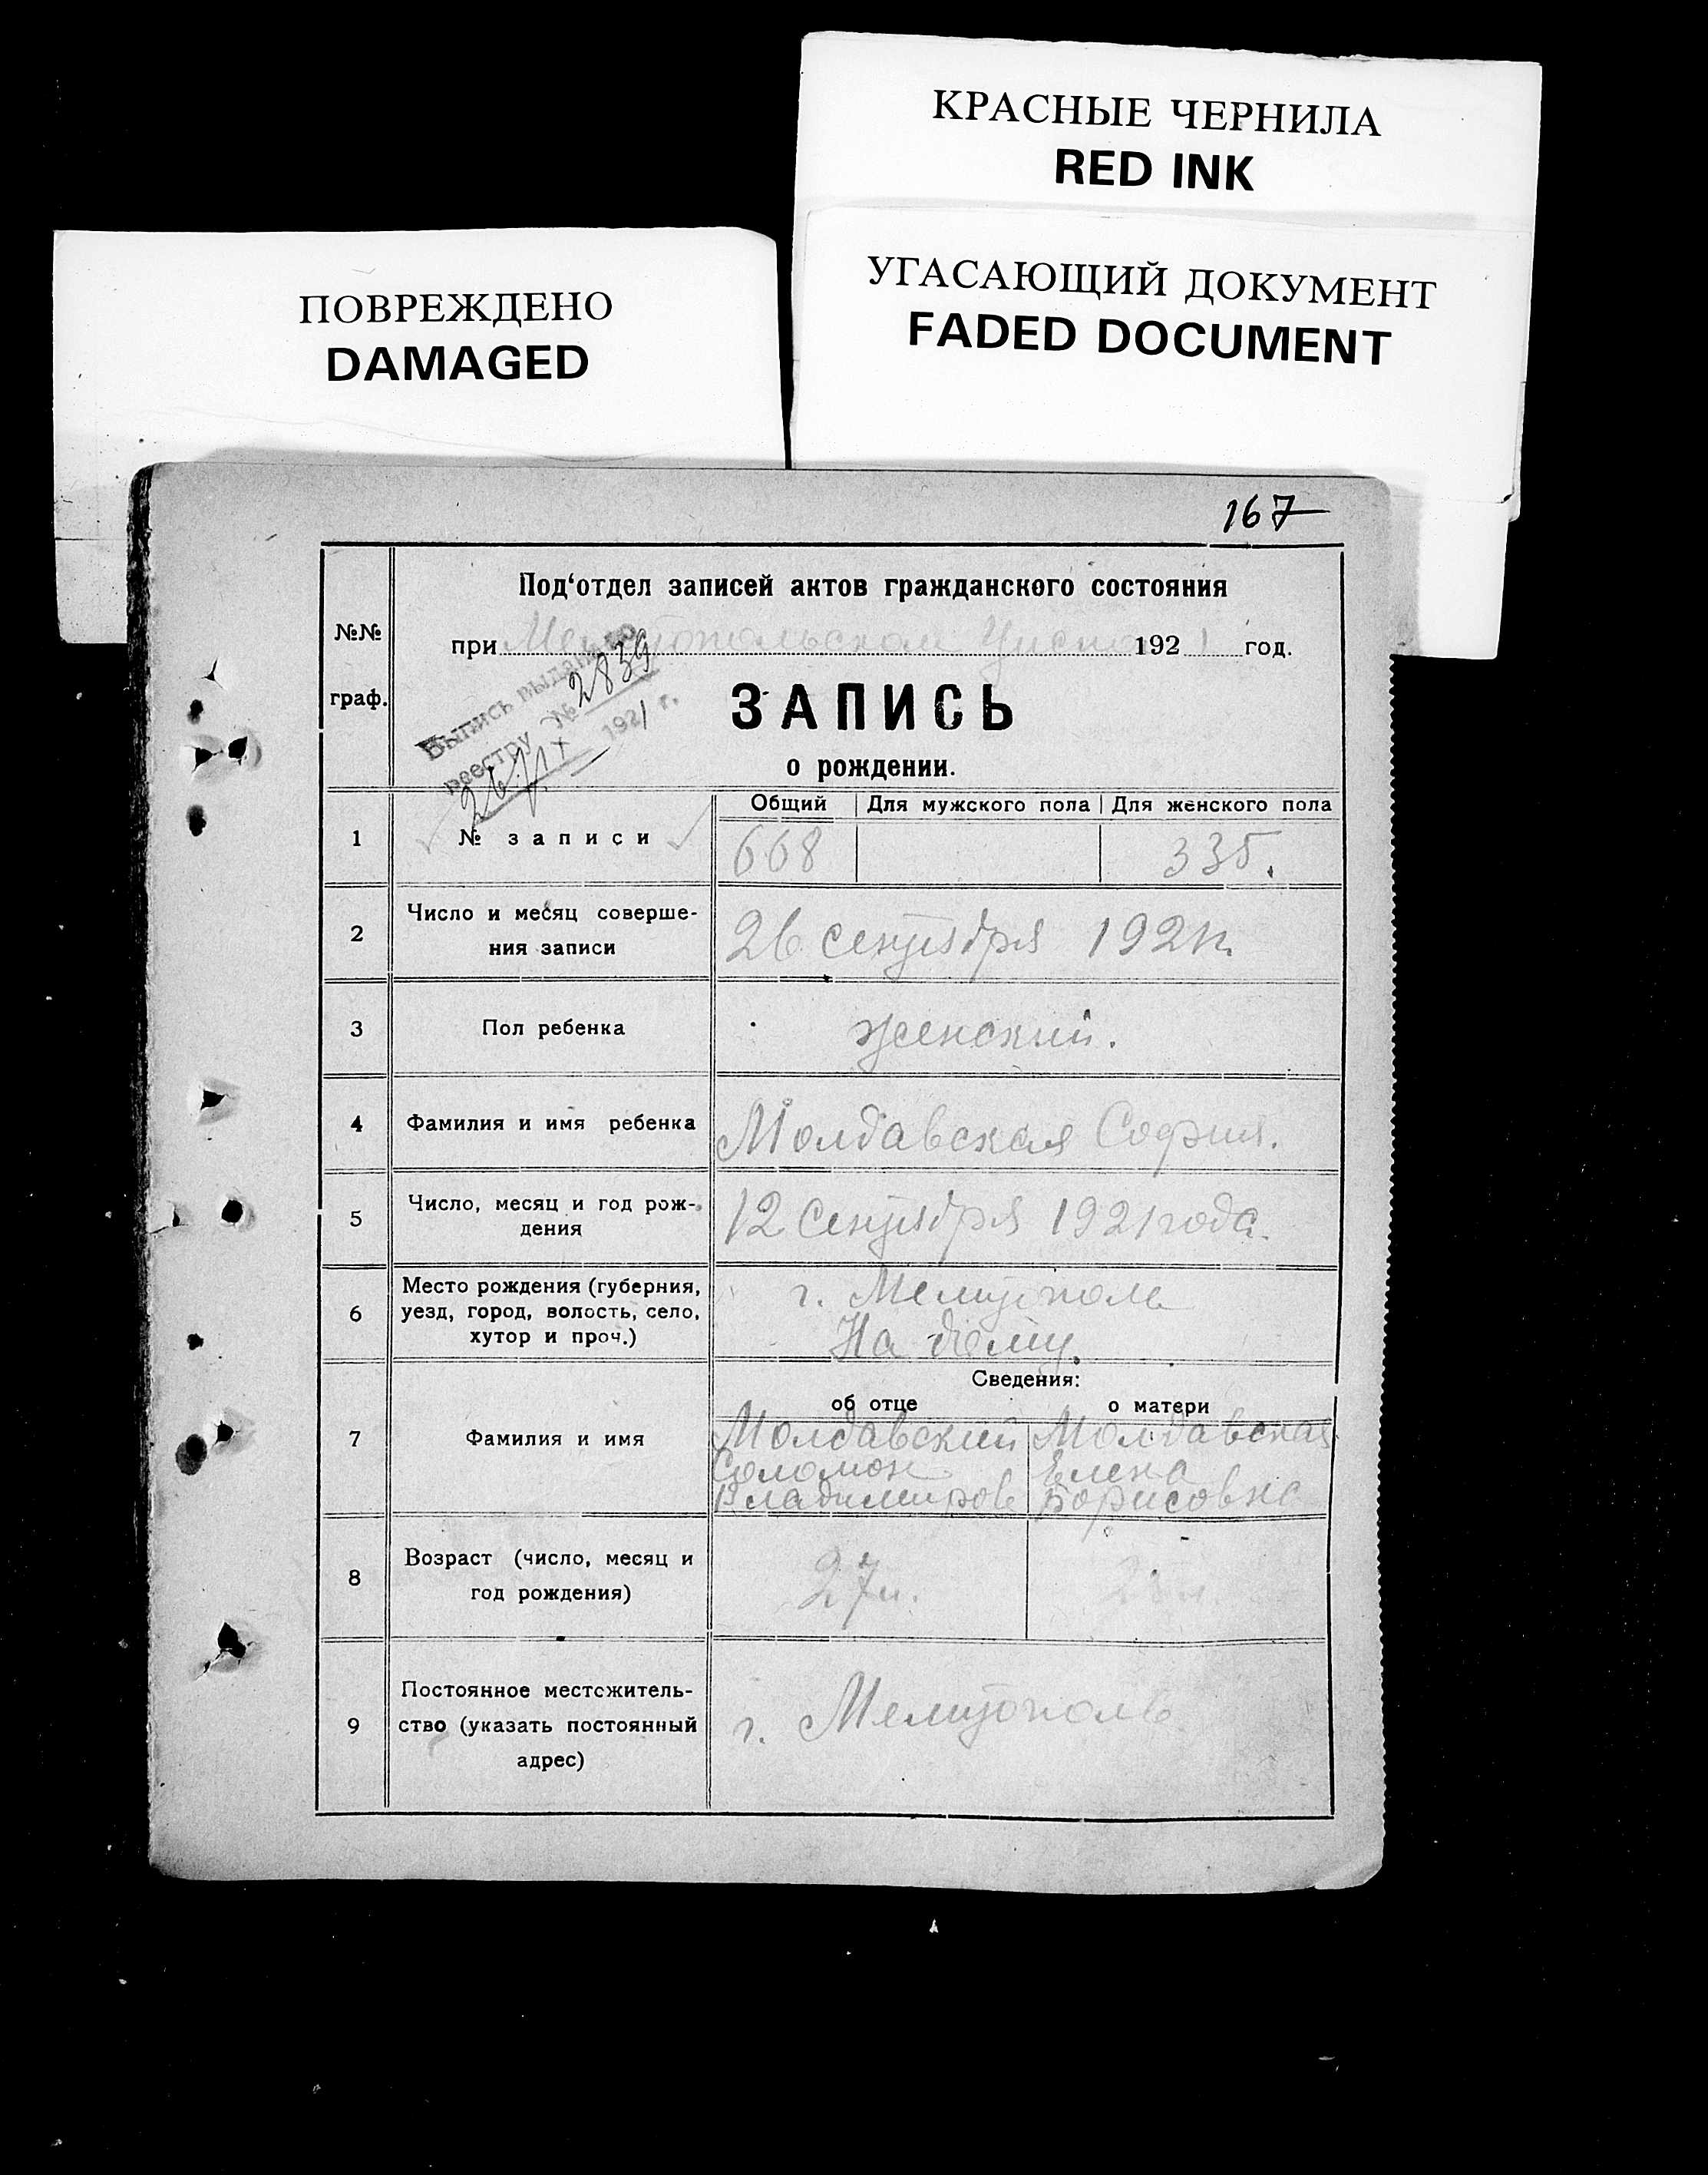 КРАСНЫЕ ЧЕРНИЛА
RED INK
УГАСАЮЩИЙ ДОКУМЕНТ
FADED DOCUMENT
ПОВРЕЖДЕНО
DAMAGED
167
Под'отдел записей актов гражданского состояния
№№
граф.
при Мелитопольском 1921 год.
Выпись выдана по
реестру № 2839
26/IX 1921 г.
ЗАПИСЬ
о рождении.
Общий Для мужского пола Для женского пола
1 № записи 668 335.
2 Число и месяц соверше-
ния записи 26 сентября 1921г.
3 Пол ребенка женский.
4 Фамилия и имя ребенка Молдавская София.
5 Число, месяц и год рож-
дения 12 сентября 1921 года.
6 Место рождения (губерния,
уезд, город, волость, село,
хутор и проч.)
г. Мелитополь
На дому.
Сведения:
об отце о матери
7 Фамилия и имя
Молдавский Молдавская
Соломон Елена
Владимиров Борисовна
8 Возраст (число, месяц и
год рождения) 27 л.
9 Постоянное местожитель-
ство (указать постоянный
адрес)
г. Мелитополь